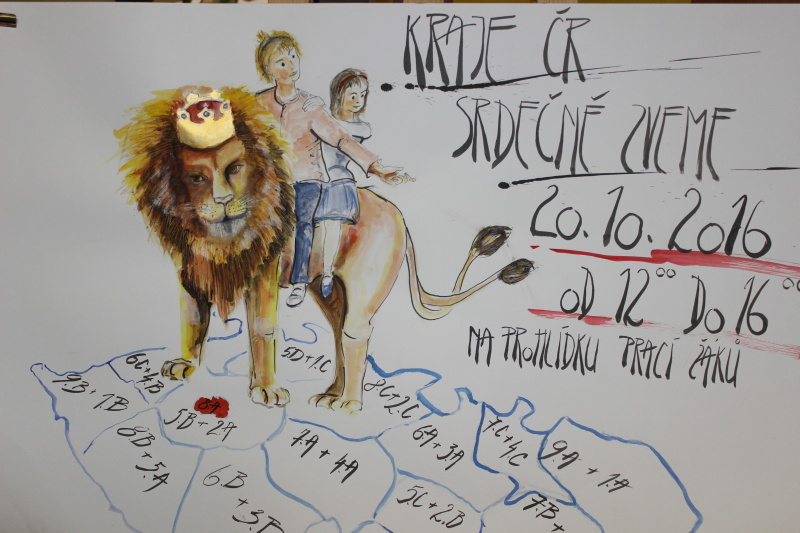 KRAJE ČR
SRDEČNĚ ZVEME
20.10.2016
OD 12°° DO 16°°
NA PROHLÍDKU PRACÍ ŽÁKŮ
5D+1.C
6C+4.B
9.B+1.B
8C+2.C
8A
5B+2.A
8B
+5.A
7.A+4.A
6A+3A
7.C+4C
9.A+1.A
6.B
+3.B
5.C+2.B
7.B+